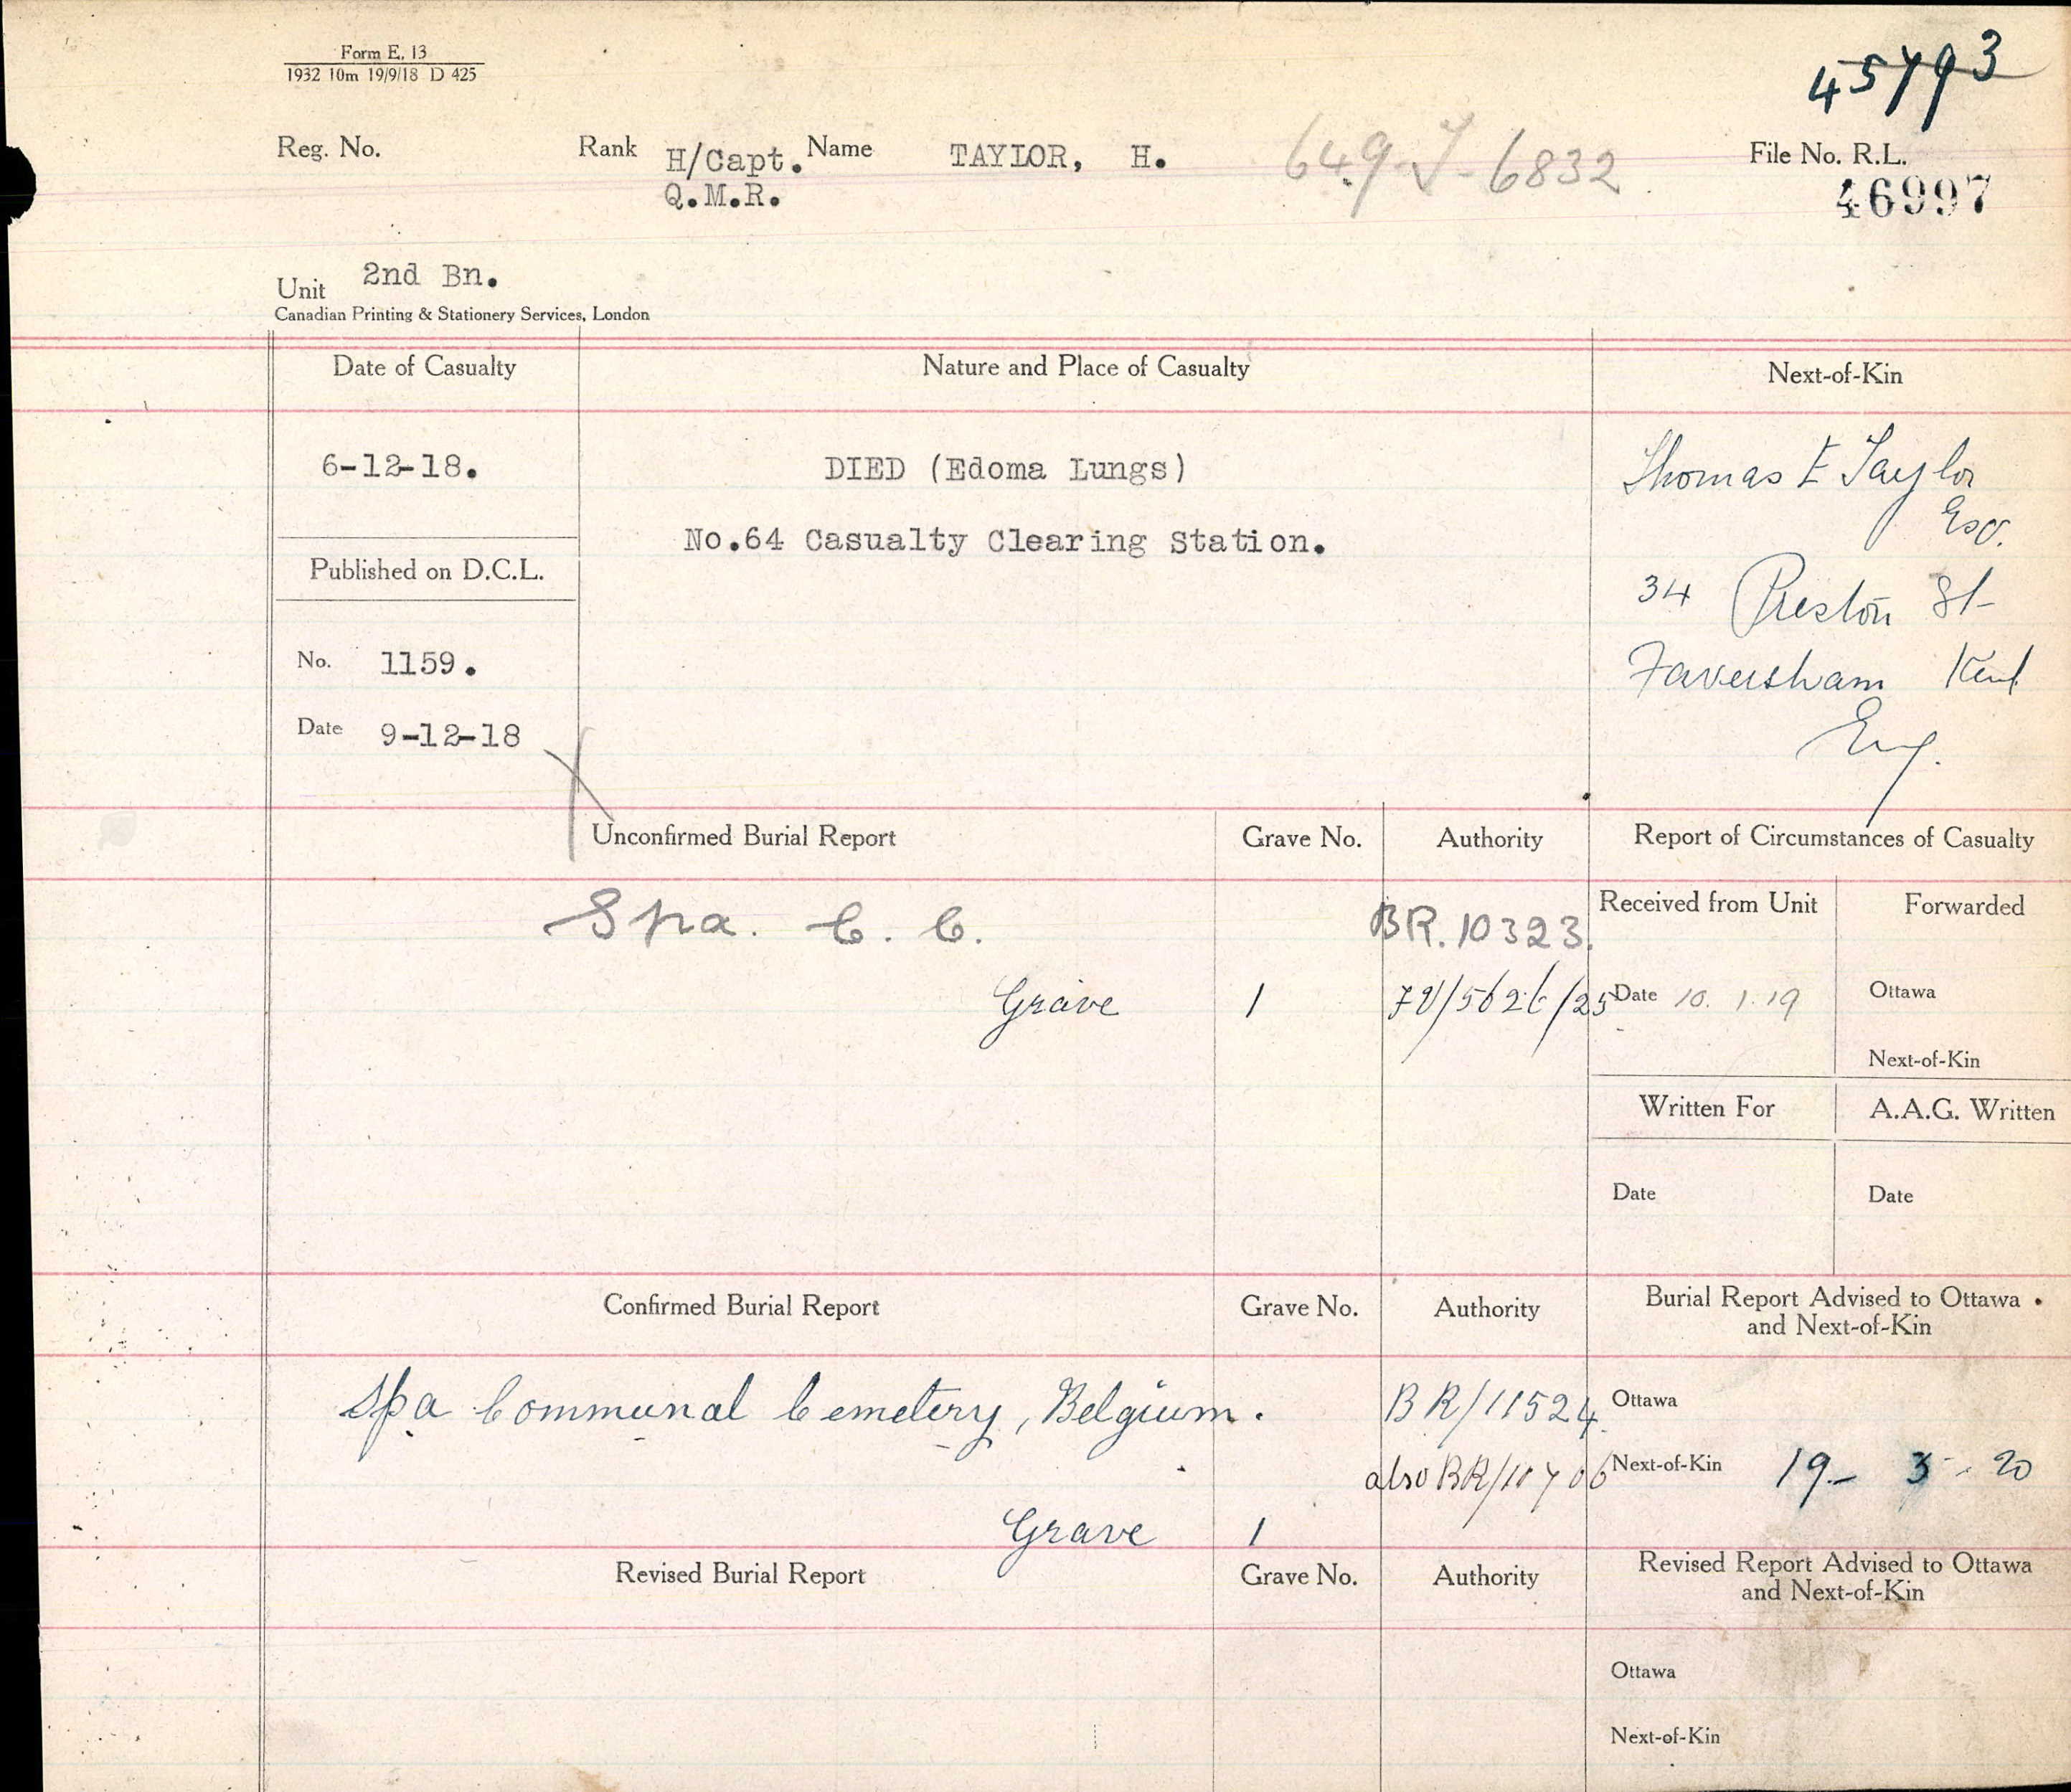 Form E, 13
1932 10m 19/9/18 D 425
45793
Reg. No. Rank H/Capt. Name TAYLOR, H. 649-T-6832 File No. R.L.
Q.M.R. 46997
Unit 2nd Bn.
Canadian Printing & Stationery Services, London
Date of Casualty Nature and Place of Casualty Next-of-Kin
6-12-18. DIED (Edoma Lungs) Thomas E Taylor
Esq.
No.64 Casualty Clearing Station.
Published on D.C.L. 34 Preston St
No. 1159. Faversham Kent
Date 9-12-18 Eng.
Unconfirmed Burial Report Grave No. Authority Report of Circumstances of Casualty
Spa. C. C. BR. 10323. Received from Unit Forwarded
Grave 1 /5626/25 Date 10.1.19 Ottawa
Next-of-Kin
Written For A.A.G. Written
Date Date
Confirmed Burial Report Grave No. Authority Burial Report Advised to Ottawa
and Next-of-Kin
Spa Communal Cemetery, Belgium. BR/11524 Ottawa
also BR/10706 Next-of-Kin 19-3-20
Grave 1
Revised Burial Report Grave No. Authority Revised Report Advised to Ottawa
and Next-of-Kin
Ottawa
Next-of-Kin